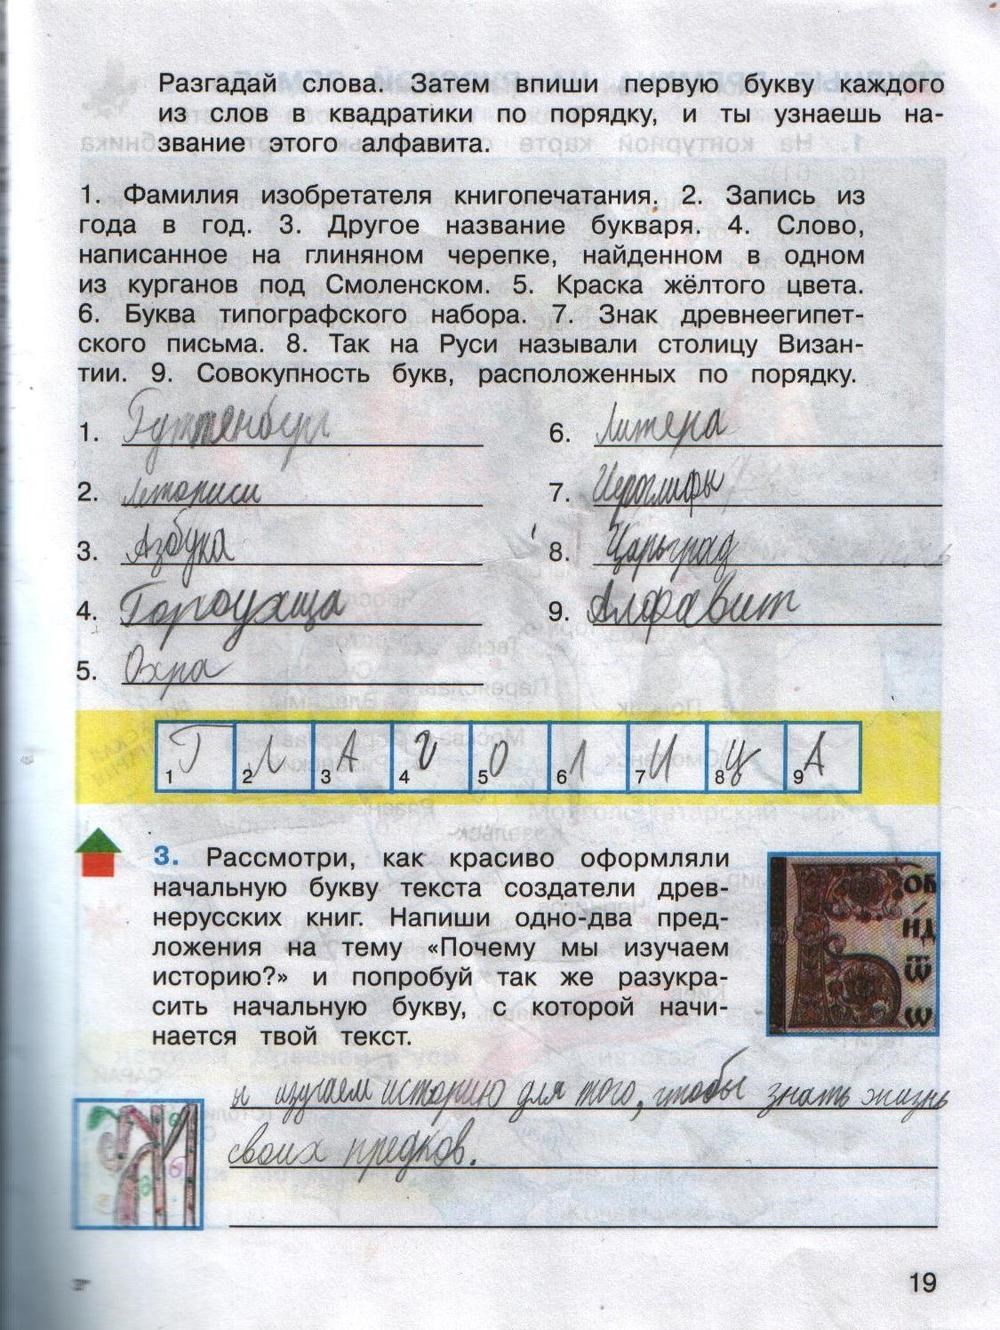 Разгадай слова. Затем впиши первую букву каждого
из слов в квадратики по порядку, и ты узнаешь на-
звание этого алфавита.
1. Фамилия изобретателя книгопечатания. 2. Запись из
года в год. 3. Другое название букваря. 4. Слово,
написанное на глиняном черепке, найденном в одном
из курганов под Смоленском. 5. Краска жёлтого цвета.
6. Буква типографского набора. 7. Знак древнеегипет-
ского письма. 8. Так на Руси называли столицу Визан-
тии. 9. Совокупность букв, расположенных по порядку.
1. Гуттенберг
2. Летописи
3. Азбука
4. Гороухща
5. Охра
6. Литера
7. Иероглифы
8. Царьград
9. Алфавит
1 Г 2 Л 3 А 4 Г 5 О 6 Л 7 И 8 Ц 9 А
3. Рассмотри, как красиво оформляли
начальную букву текста создатели древ-
нерусских книг. Напиши одно-два пред-
ложения на тему «Почему мы изучаем
историю?» и попробуй так же разукра-
сить начальную букву, с которой начи-
нается твой текст.
М
ы изучаем историю для того, чтобы знать жизнь
своих предков.
19